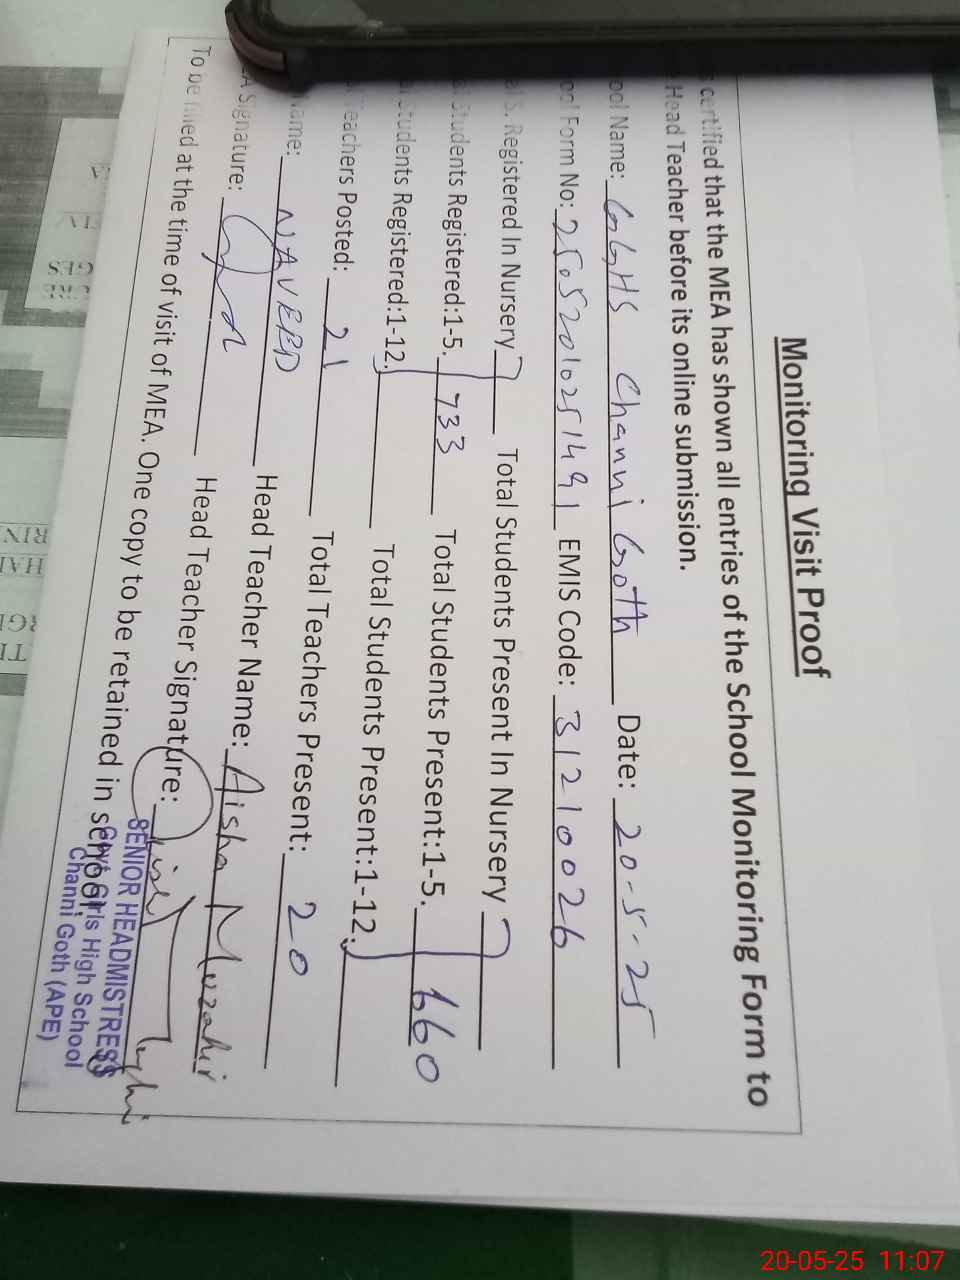 Monitoring Visit Proof
certified that the MEA has shown all entries of the School Monitoring Form to
Head Teacher before its online submission.
ool Name: GGHS Channi Goth Date: 20-5-25
ool Form No: 25052010251491 EMIS Code: 31210026
al S. Registered In Nursery Total Students Present In Nursery
al Students Registered:1-5. 733 Total Students Present:1-5. 660
al Students Registered:1-12. Total Students Present:1-12.
Teachers Posted: 21 Total Teachers Present: 20
Name: NAVEED Head Teacher Name: Aisha Muzahir
A Signature: Head Teacher Signature:
To be filled at the time of visit of MEA. One copy to be retained in school.
SENIOR HEADMISTRESS
Govt Girls High School
Channi Goth (APE)
20-05-25 11:07